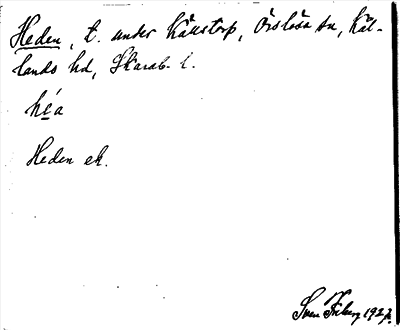 Heden, t. under Källstorp, Örslösa sn, Kål-
lands hd, Skarab. l.
hé̱a
Heden ek.
Sven Ekberg 1927.